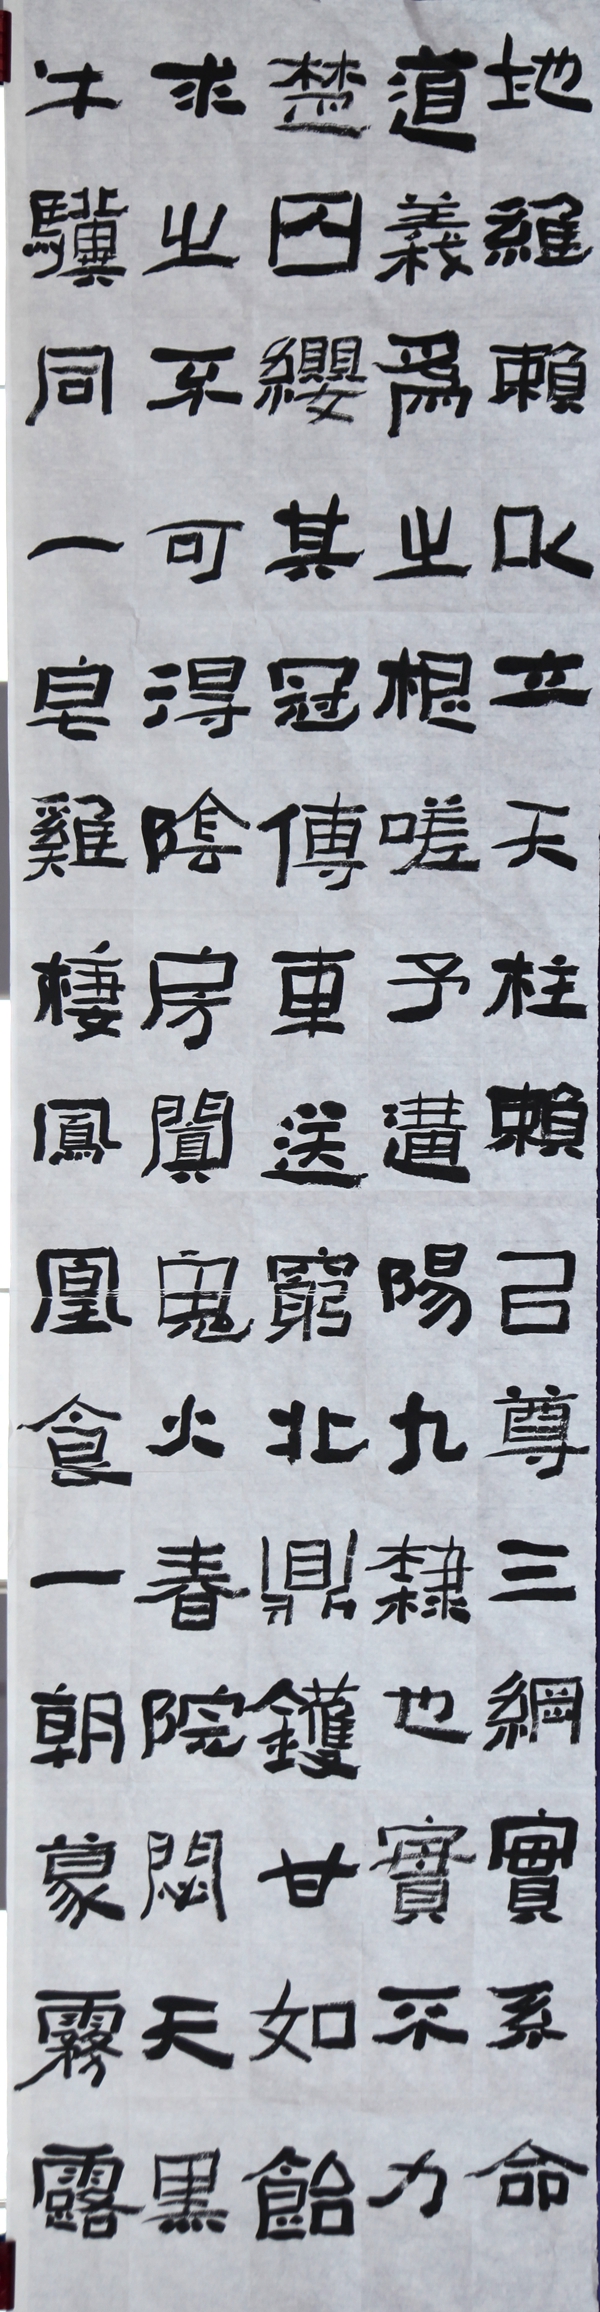 地維賴以立天柱賴以尊三綱實系命
道義爲之根嗟予遘陽九隸也實不力
楚囚纓其冠傳車送窮北鼎鑊甘如飴
求之不可得陰房闐鬼火春院閟天黑
牛驥同一皂雞棲鳳凰食一朝蒙霧露